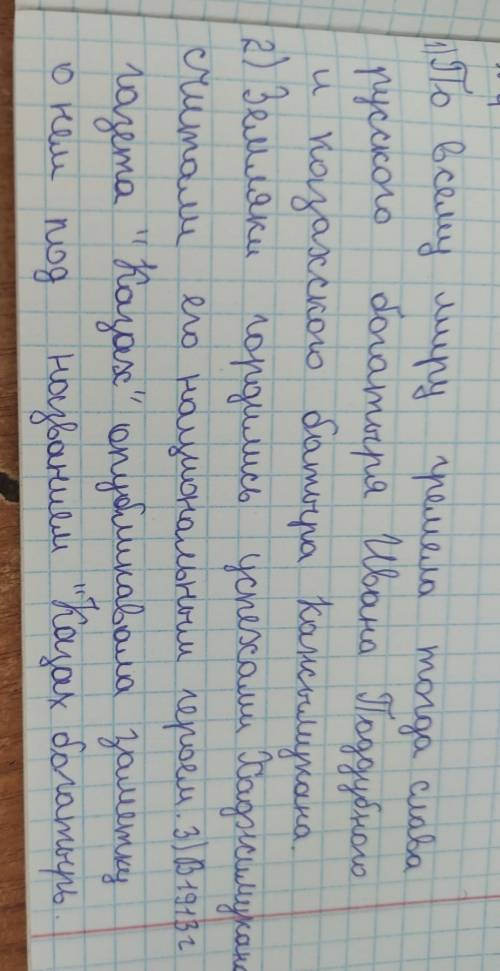 1) По всему миру гремела тогда слава
русского богатыря Ивана Поддубного
и казахского батыра Кажымукана.
2) Земляки гордились успехами Хаджимукана
считали его национальным героем. 3) В 1913 г
газета "Казах" опубликавала заметку
о нем под названием "Казах богатырь.